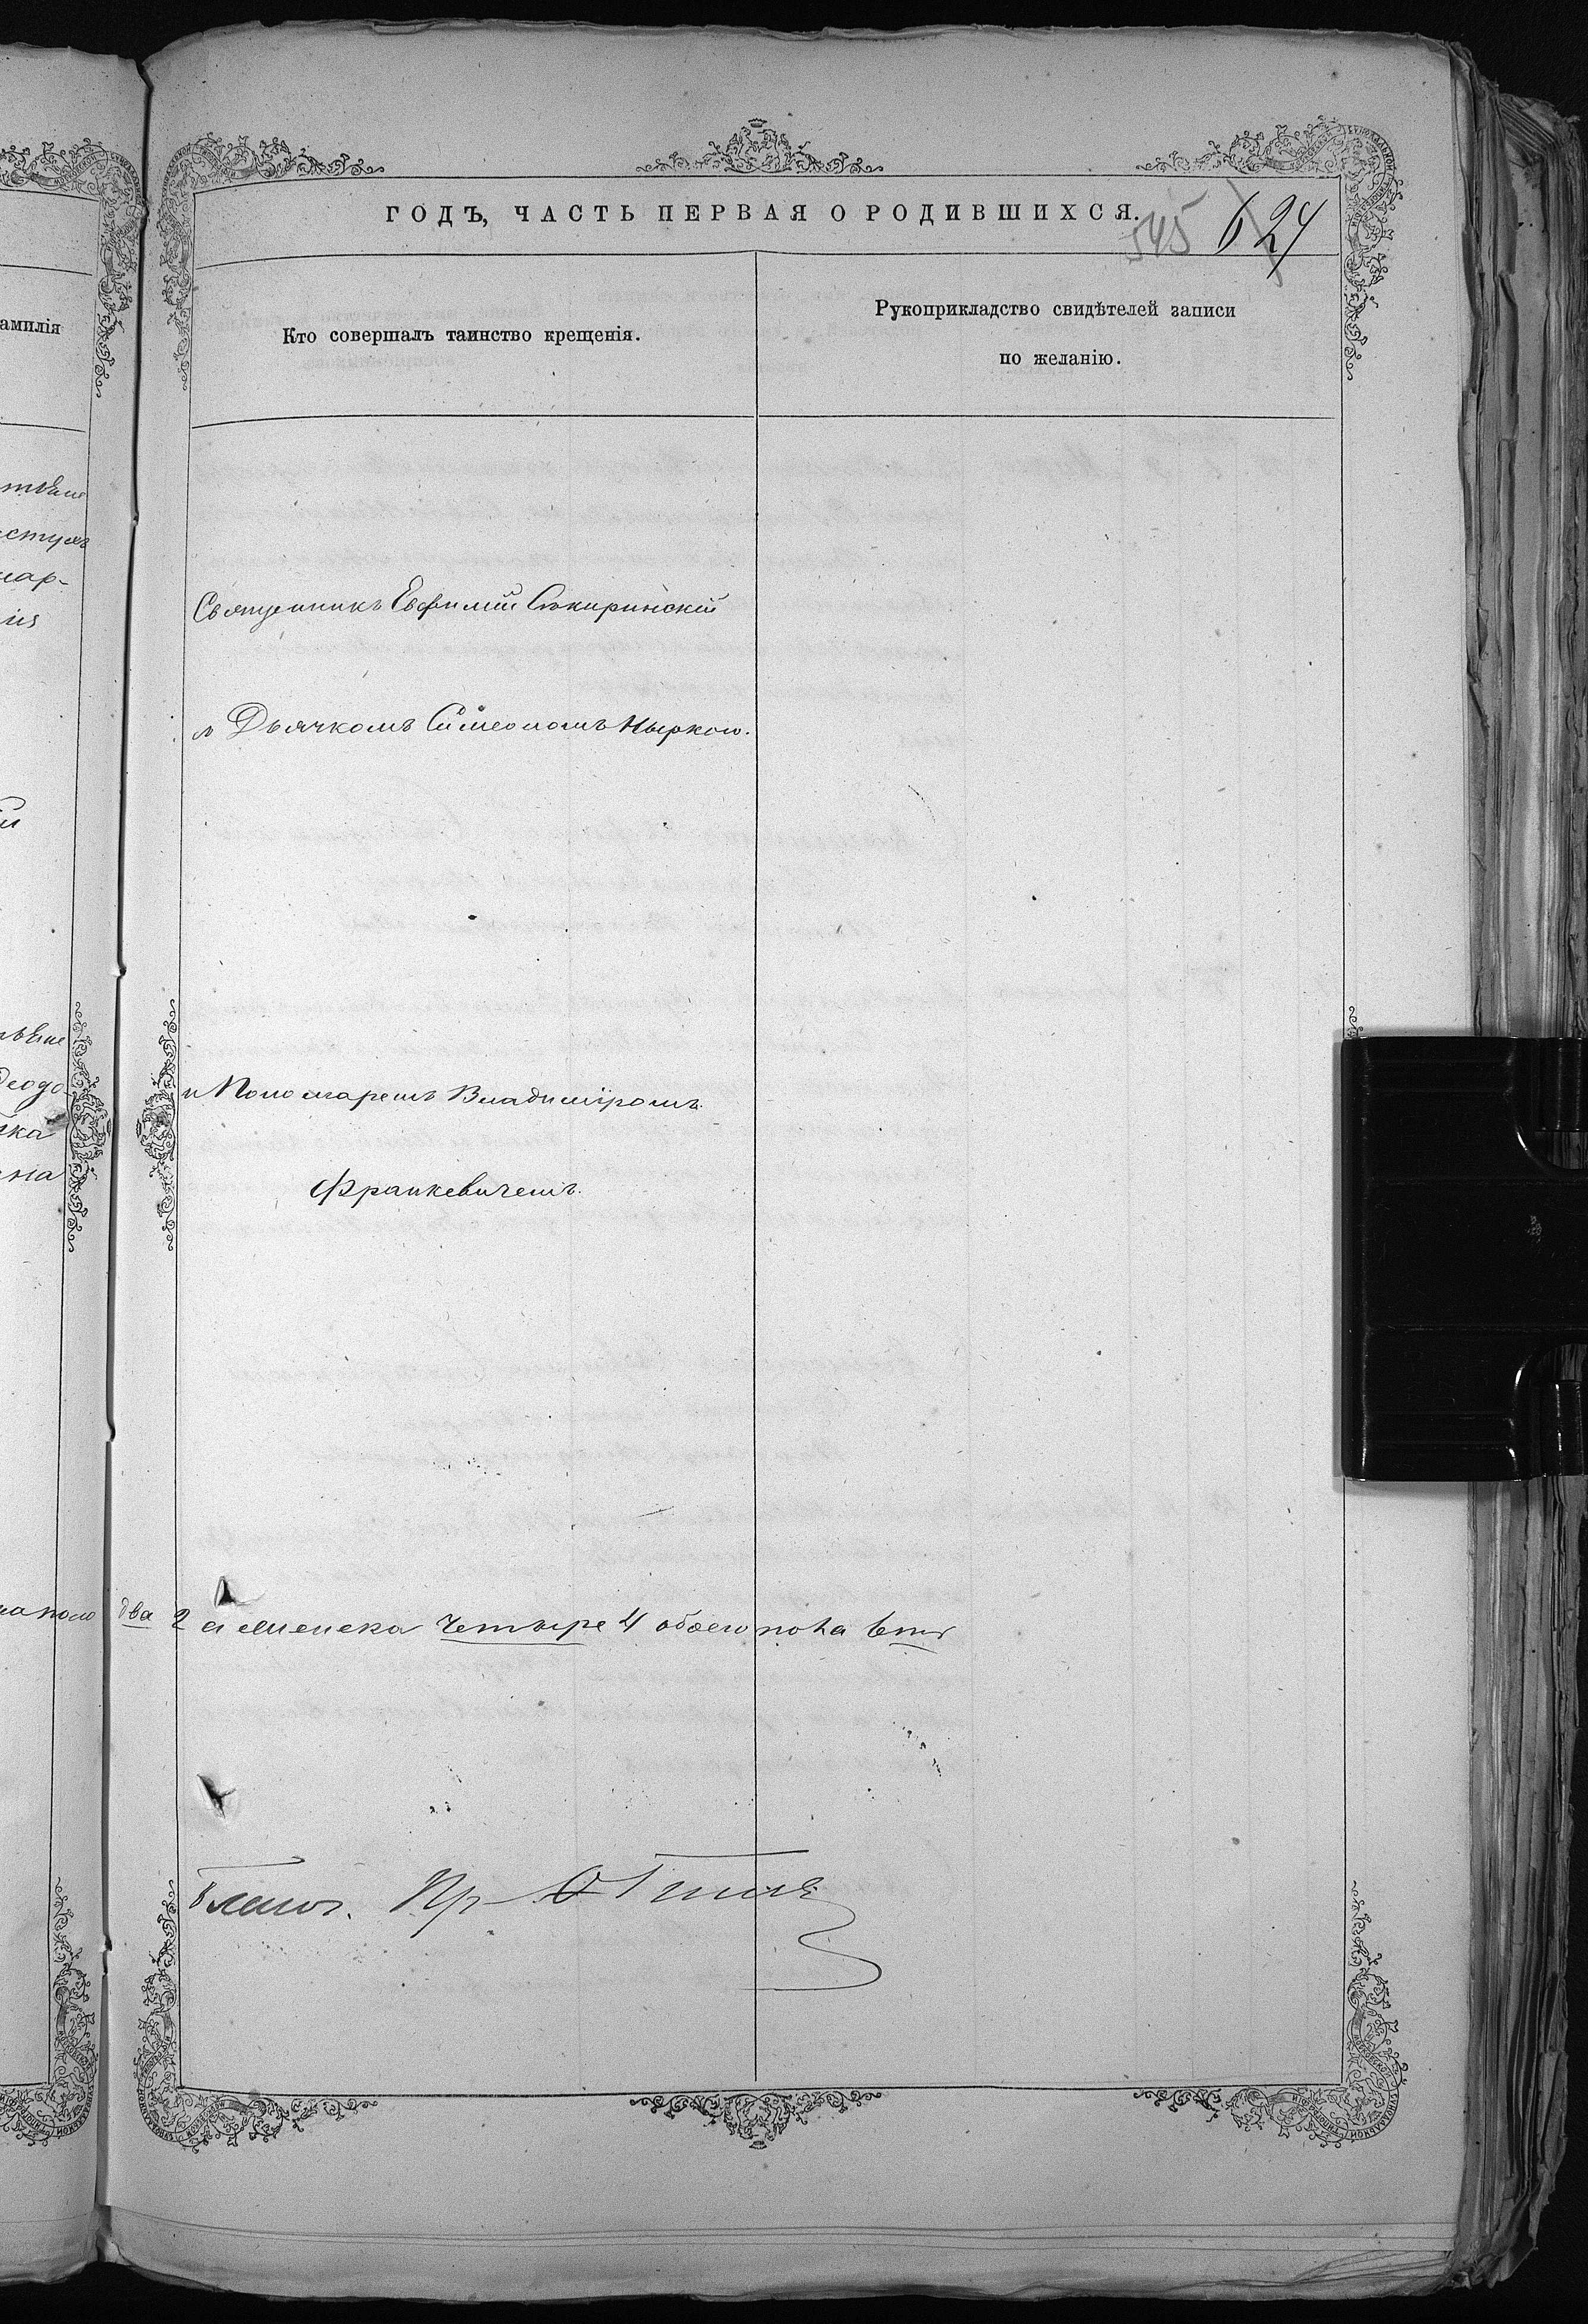 ГОДЪ, ЧАСТЬ ПЕРВАЯ О РОДИВШИХСЯ.
545 624
амилія
Кто совершалъ таинство крещенія.
Рукоприкладство свидѣтелей записи
по желанію.
Священникъ Евфимій Сѣкиринскій
съ Дьячкомъ Симеономъ Ныркою.
и Пономаремъ Владиміромъ
Франкевичемъ.
два 2 а женска четыре 4 обоего пола
Благоч. Пр